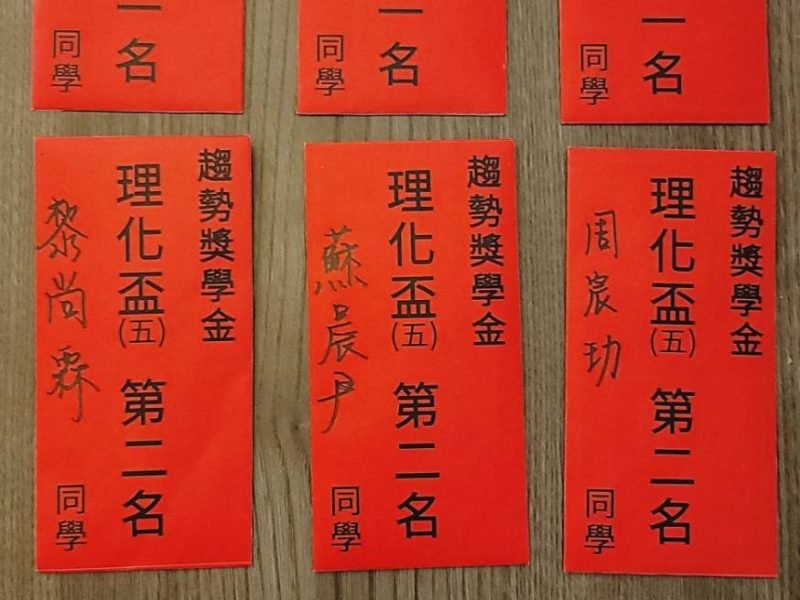 一名
同學
一名
同學
一名
同學
趨勢獎學金
理化盃(五) 第二名
黎尚霖 同學
趨勢獎學金
理化盃(五) 第二名
蘇晨尹 同學
趨勢獎學金
理化盃(五) 第二名
周宸玏 同學